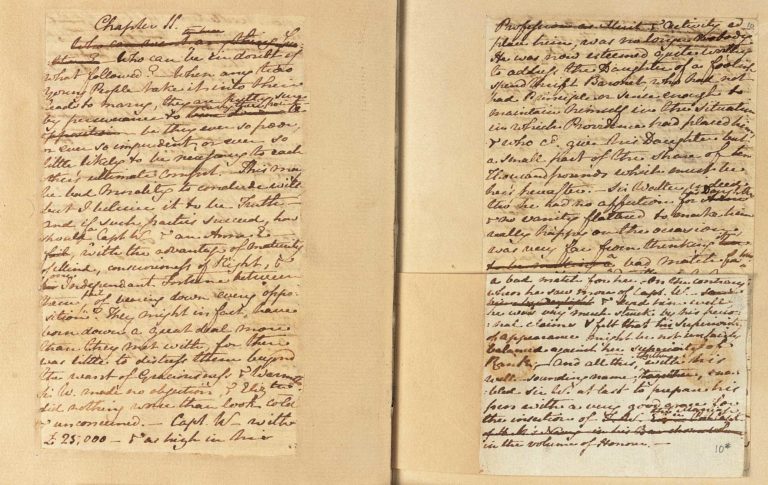 Chapter 11.
Who can be in doubt of
what followed? When any two
Young People take it into their
heads to marry, they are pretty sure
by perseverance to carry their point
be they ever so poor,
or ever so imprudent, or ever so
little likely to be necessary to each
other's ultimate comfort. This may
be bad Morality to conclude with,
but I believe it to be Truth—
and if such parties succeed, how
should a Capt. W— & an Anne E—
fail, with the advantage of maturity
of Mind, consciousness of Right, &
one Independant Fortune between
them, of bearing down every oppo-
sition? They might in fact, have
born down a great deal more
than they met with, for there
was little to distress them beyond
the want of Graciousness & Warmth.
Sir W. made no objection, & Eliz:th
did nothing worse than look cold
& unconcerned.— Capt. W— with
£ 25,000— & as high in his
10
Profession as Merit & Activity cd
place him, was no longer nobody.
He was now esteemed quite worthy
to address the Daughter of a foolish
spendthrift Baronet, who had not
had Principle or sense enough to
maintain himself in the Situation
in which Providence had placed him,
& who cd give his Daughter but
a small part of the share of ten
Thousand pounds which must be
her's hereafter.— Sir Walter indeed
tho' he had no affection for his Daughter
& no vanity flattered to make him
really happy on the occasion,
was very far from thinking
a bad match for her. On the contrary
when he saw more of Capt. W.
& eyed him well,
he was very much struck by his perso-
nal claims & felt that his Superiority
of appearance might be not unfairly
balanced against her superiority of
Rank; and all this, with his
well-sounding name, together, ena-
bled Sir W. at last to prepare his
pen with a very good grace for
the insertion of the Marriage
in the volume of Honour.—
10*